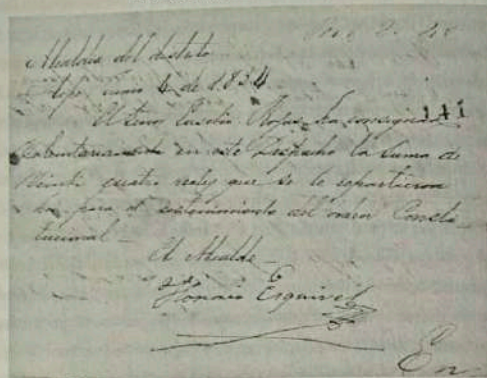 Alcaldia del distrito
junio 4 de 1854
El Señor Eusebio Rojas ha consignado 141
voluntariamente en este Despacho la suma de
Veinti quatro reales que se le repartieron
para el sostenimiento del orden Consti
tucional
El Alcalde
Esquivel
En